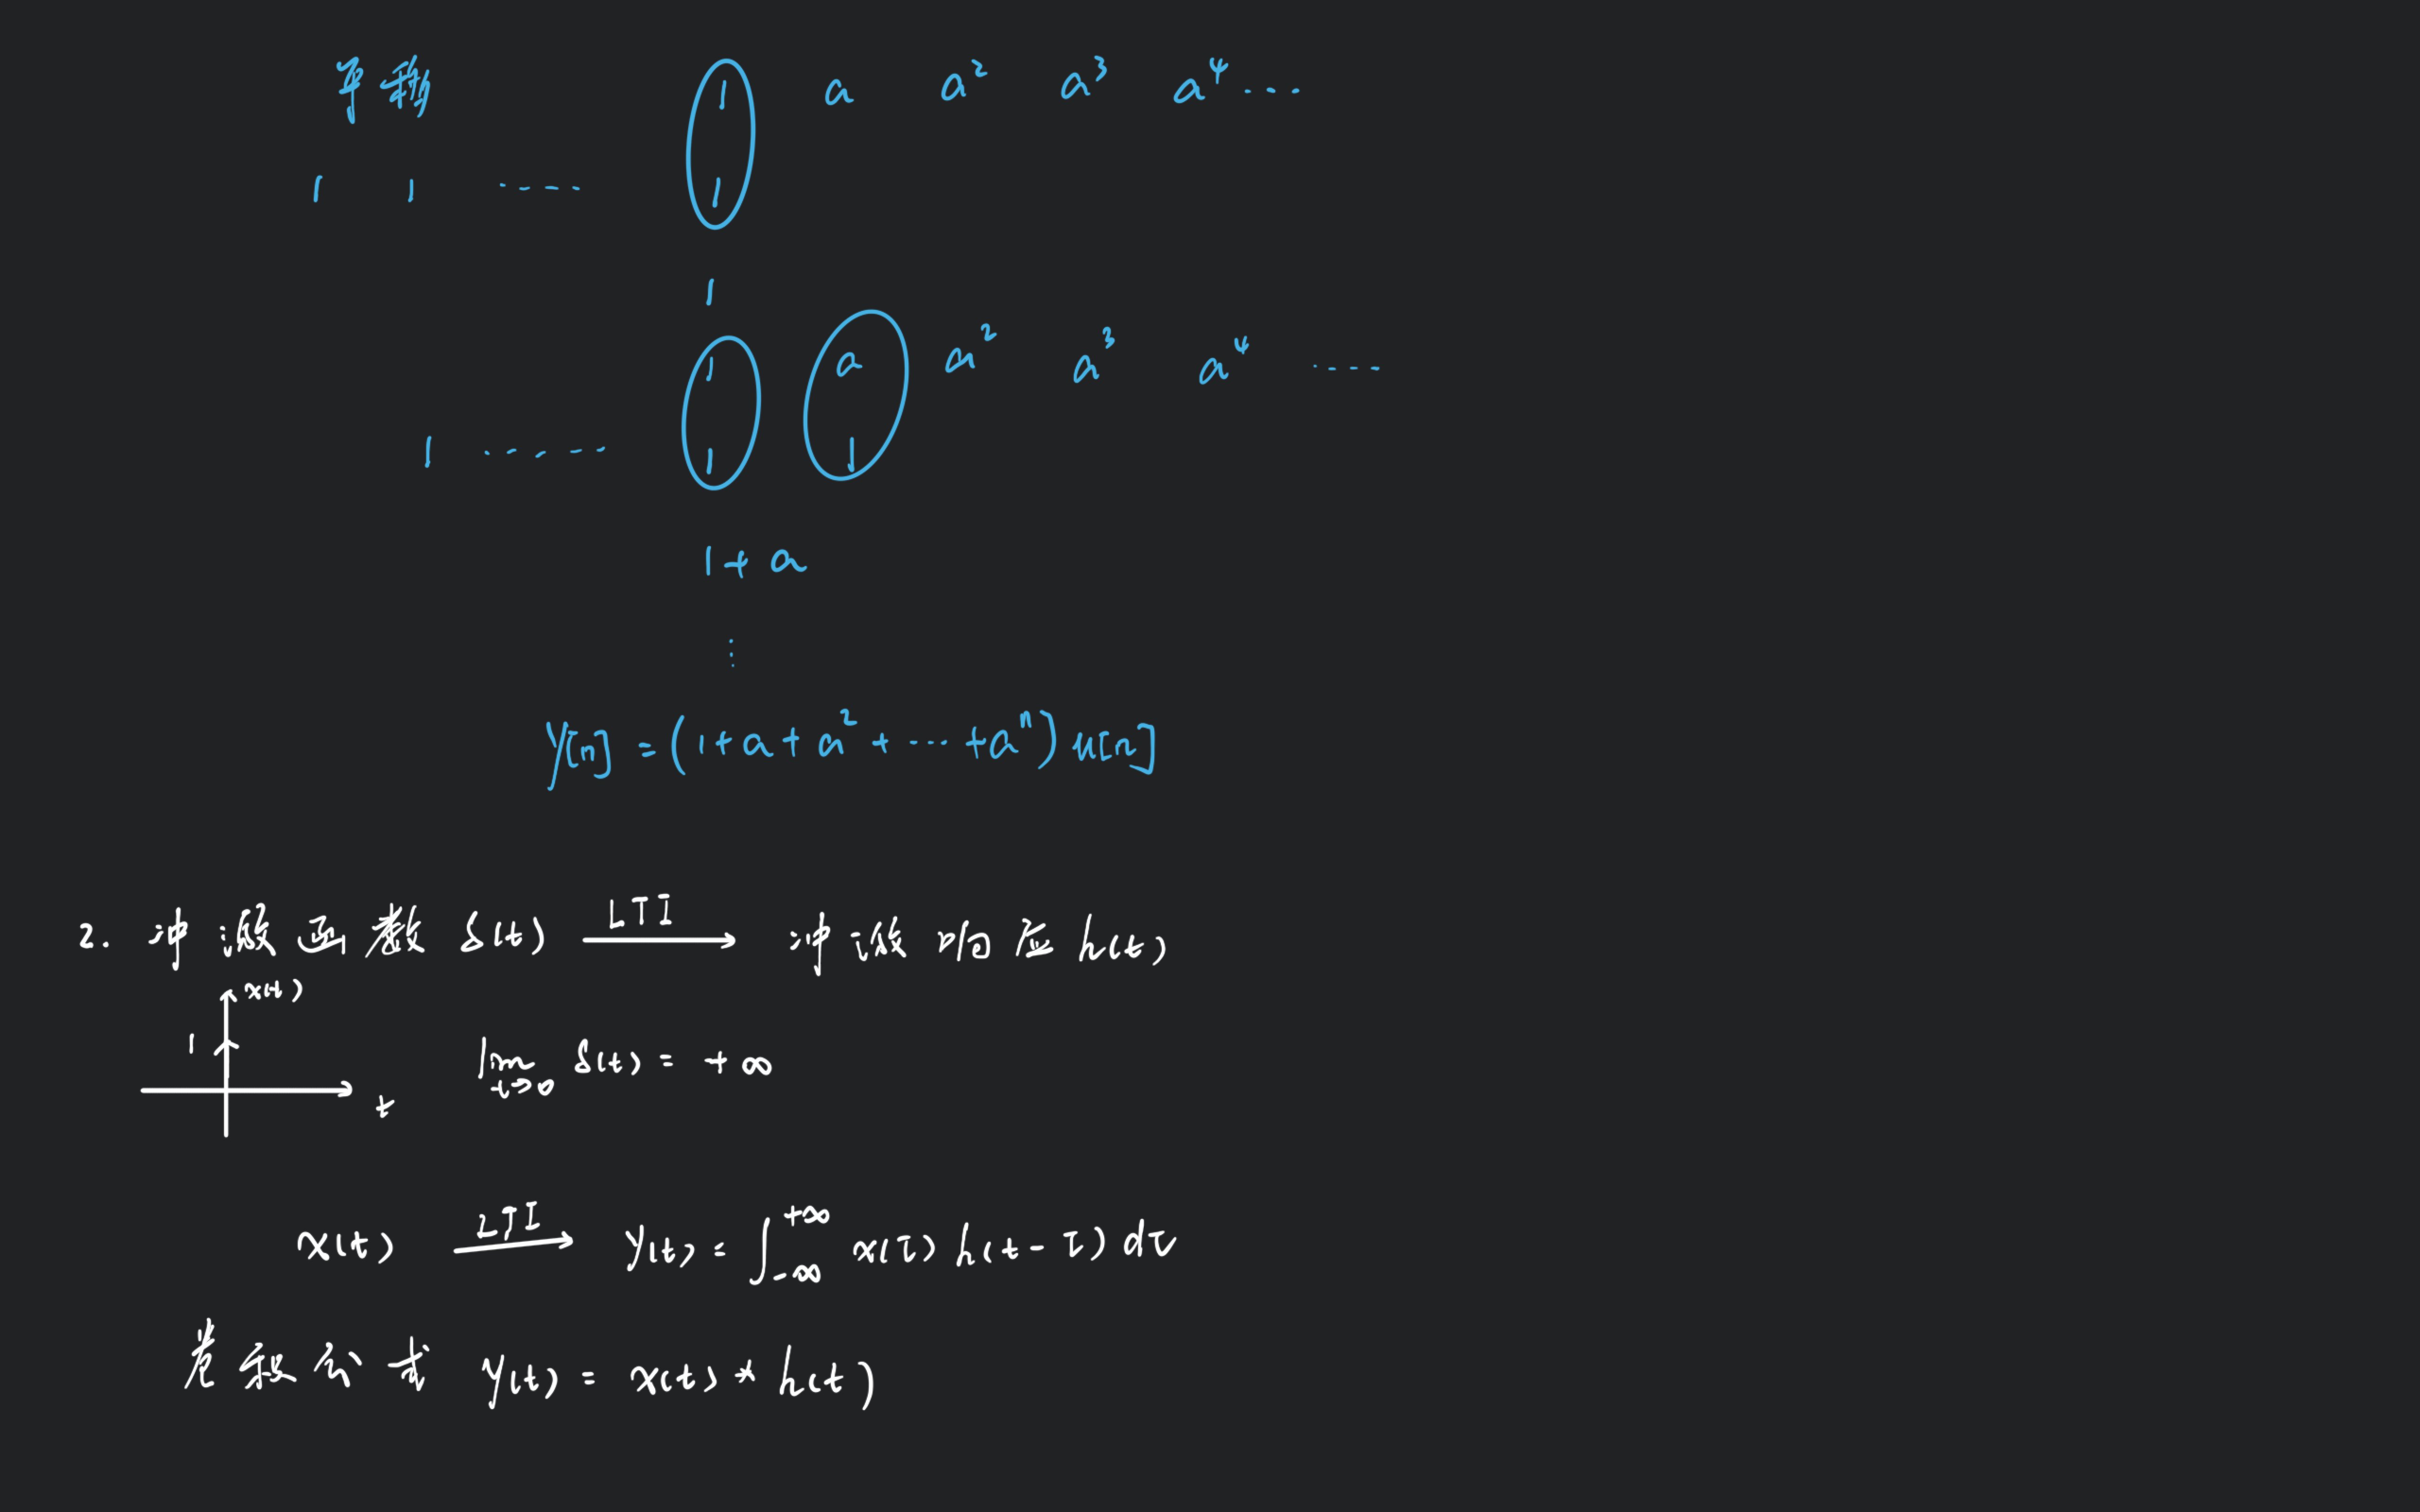 平移 1 a a² a³ a⁴ ...
1 1 ..... 1
1
1 a a² a³ a⁴ ....
1 ...... 1 1
1 + a
⋮
y[n] = (1 + a + a² + ... + aⁿ) u[n]
2. 冲激函数 δ(t) LTI→ 冲激响应 h(t)
x(t)
1
t
lim t→0 δ(t) = +∞
x(t) LTI→ y(t) = ∫_{-∞}^{+∞} x(τ) h(t-τ) dτ
卷积公式 y(t) = x(t) * h(t)